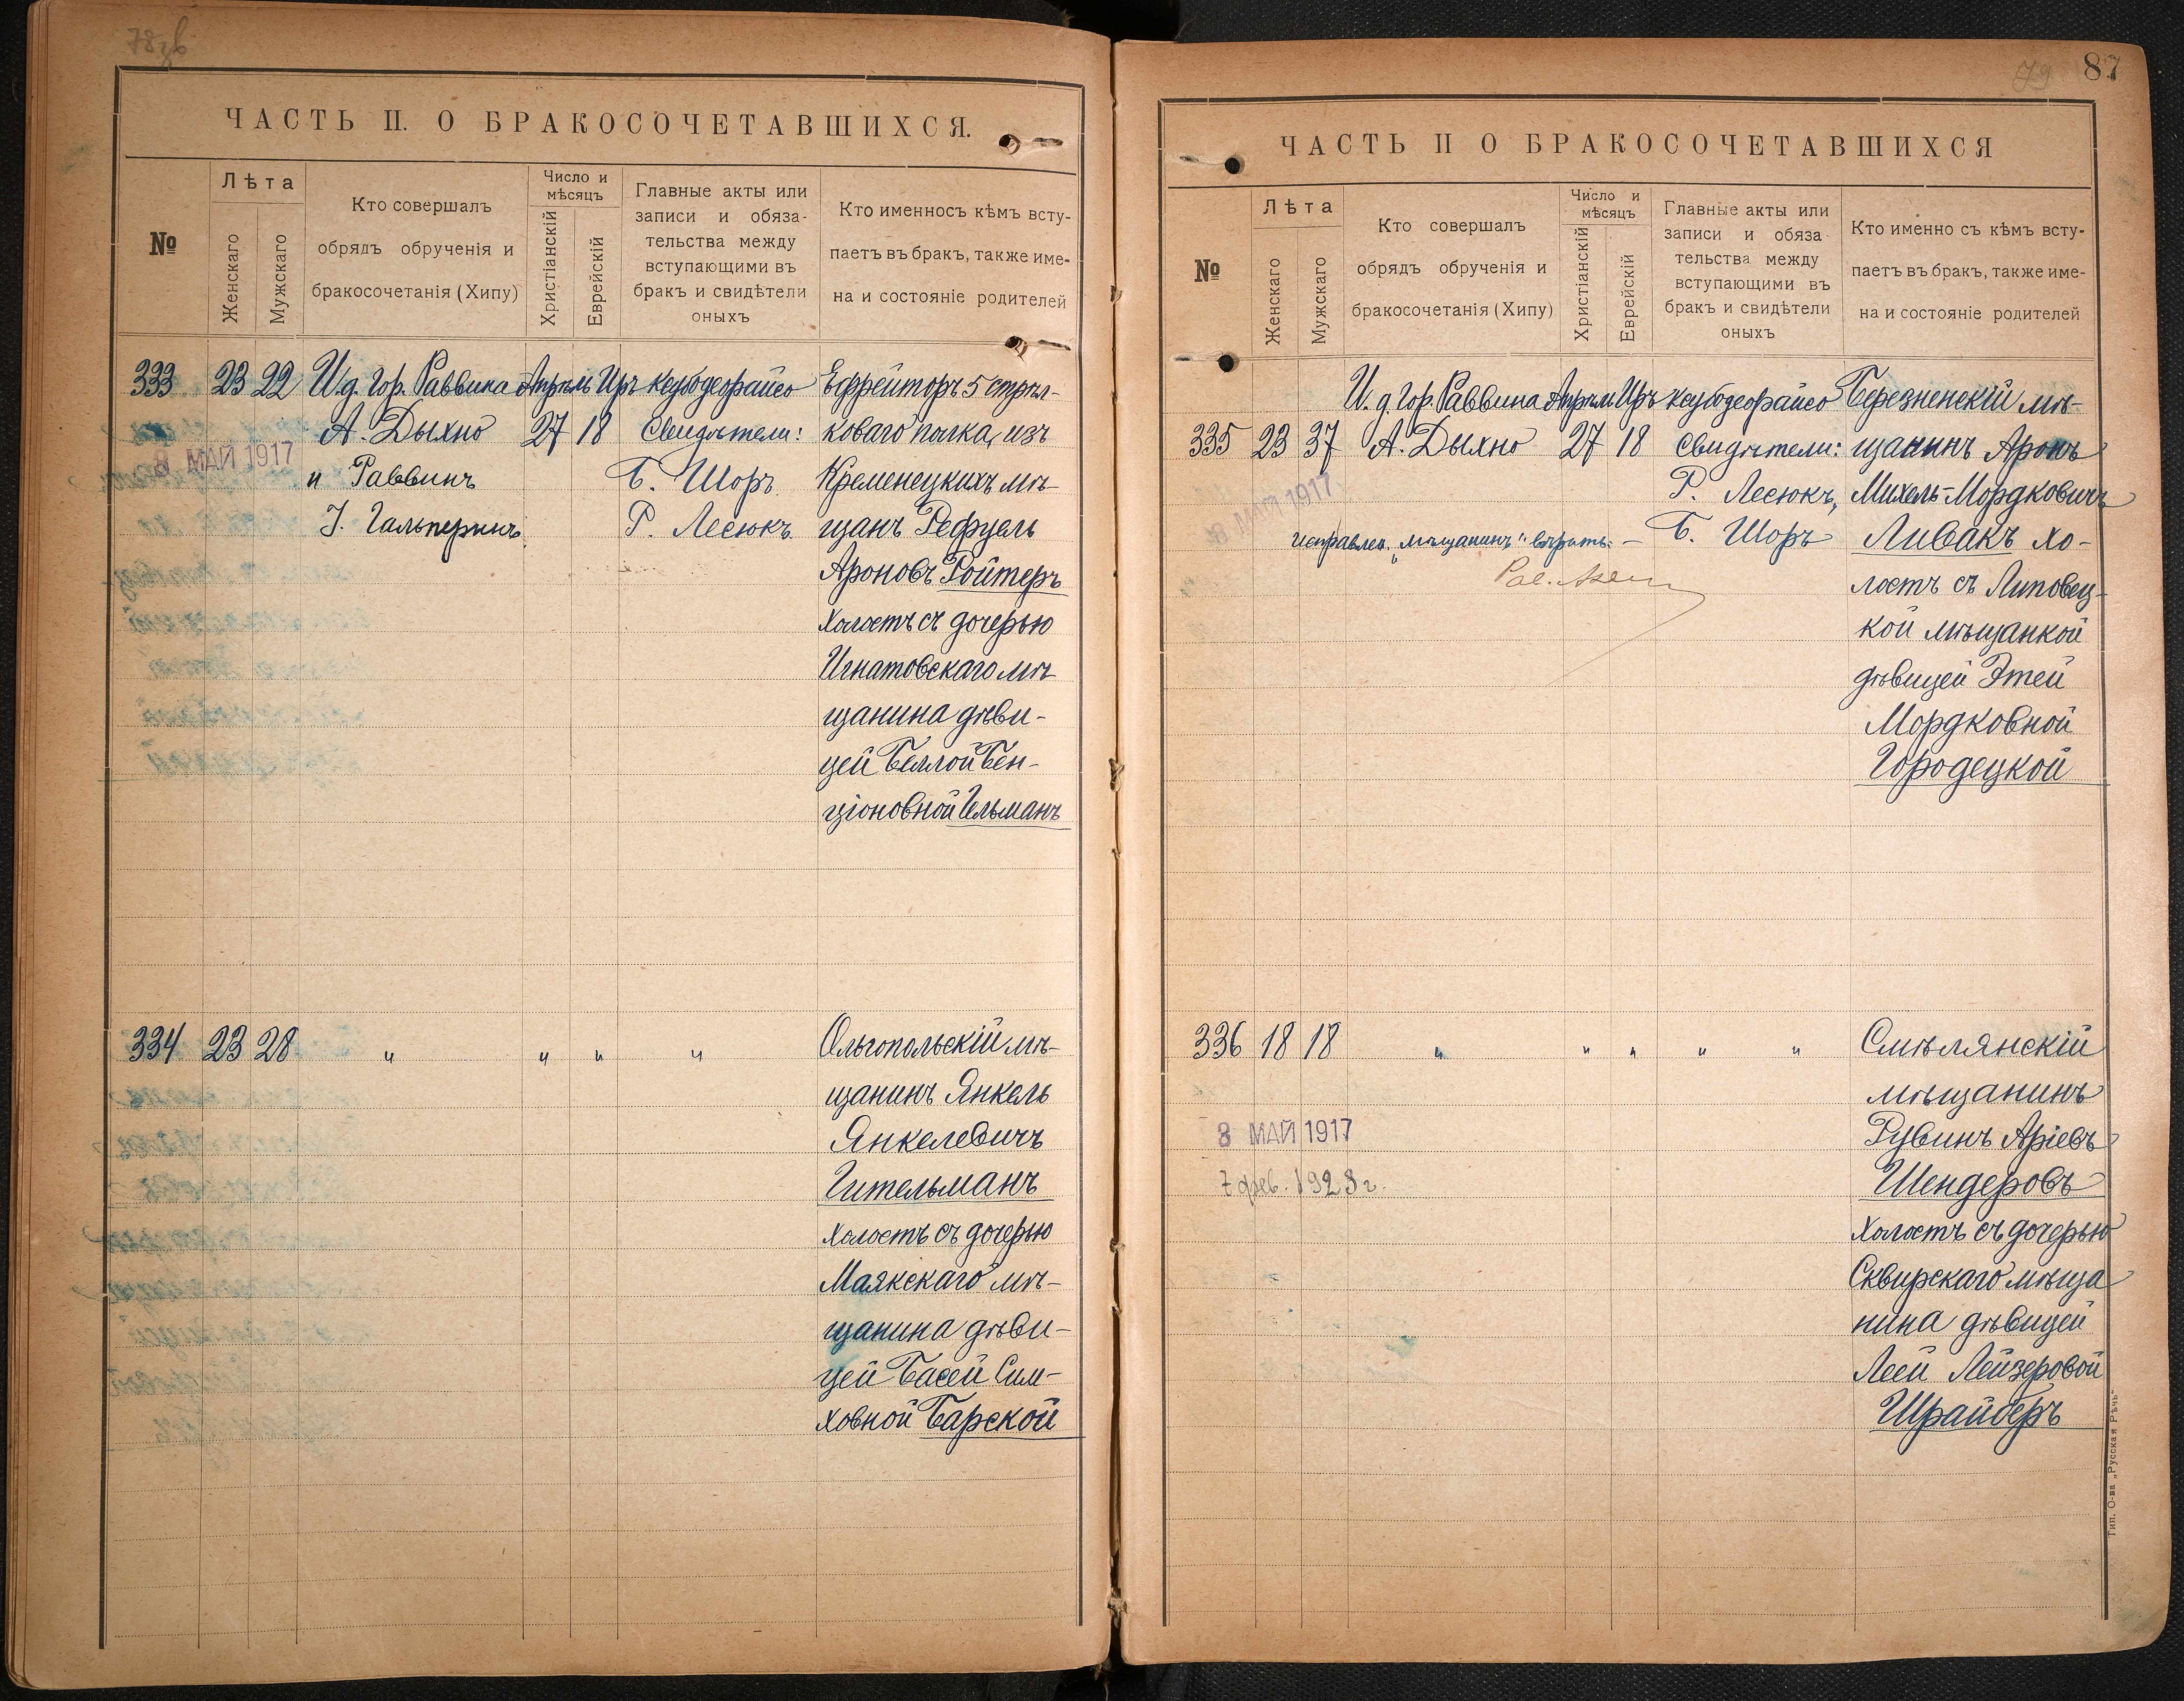 ЧАСТЬ II. О БРАКОСОЧЕТАВШИХСЯ.
№
Лѣта
Женскаго
Мужскаго
Кто совершалъ
обрядъ обрученія и
бракосочетанія (Хипу)
Число и
мѣсяцъ
Христіанскій
Еврейскій
Главные акты или
записи и обяза-
тельства между
вступающими въ
бракъ и свидѣтели
оныхъ
Кто именносъ кѣмъ всту-
паетъ въ бракъ, также име-
на и состояніе родителей
333 23 22
И.д. Гор. Раввина
А. Дыхно
и Раввинъ
І. Гальперинъ.
8 МАЙ 1917
Апрѣль Иръ
27 18
кезубдеорайсо
Свидѣтели:
Б. Шоръ
Р. Лесюкъ
Ефрейторъ 5 стрѣл-
коваго полка, изъ
Кременецкихъ мѣ-
щанъ Рефуель
Ароновъ Ройтеръ
холостъ съ дочерью
Игнатовскаго мѣ-
щанина дѣви-
цей Беллой Бен-
ціоновной Гельманъ
334 23 28 " " " "
Ольгопольскій мѣ-
щанинъ Янкель
Янкелевичъ
Гительманъ
холостъ съ дочерью
Маякскаго мѣ-
щанина дѣви-
цей Басей Сим-
ховной Барской
79 87
ЧАСТЬ II О БРАКОСОЧЕТАВШИХСЯ
№
Лѣта
Женскаго
Мужскаго
Кто совершалъ
обрядъ обрученія и
бракосочетанія (Хипу)
Число и
мѣсяцъ
Христіанскій
Еврейскій
Главные акты или
записи и обяза-
тельства между
вступающими въ
бракъ и свидѣтели
оныхъ
Кто именно съ кѣмъ всту-
паетъ въ бракъ, также име-
на и состояніе родителей
335 23 37
И. д. Гор. Раввина
А. Дыхно
8 МАЙ 1917
Апрѣль Иръ
27 18
кезубдеорайсо
Свидѣтели:
Р. Лесюкъ,
Б. Шоръ
исправлен. „мѣщанинъ" вѣрить. —
Березненскій мѣ-
щанинъ Аронъ
Михель-Мордковичъ
Ливакъ хо-
лостъ съ Липовец-
кой мѣщанкой
дѣвицей Этей
Мордковной
Городецкой
336 18 18 " " " " "
8 МАЙ 1917
7 фев. 1928 г.
Смѣлянскій
мѣщанинъ
Рувинъ Аріевъ
Шендеровъ
холостъ съ дочерью
Сквирскаго мѣща
нина дѣвицей
Леей Лейзеровой
Шрайберъ
Тип. О-ва „Русская Рѣчь"